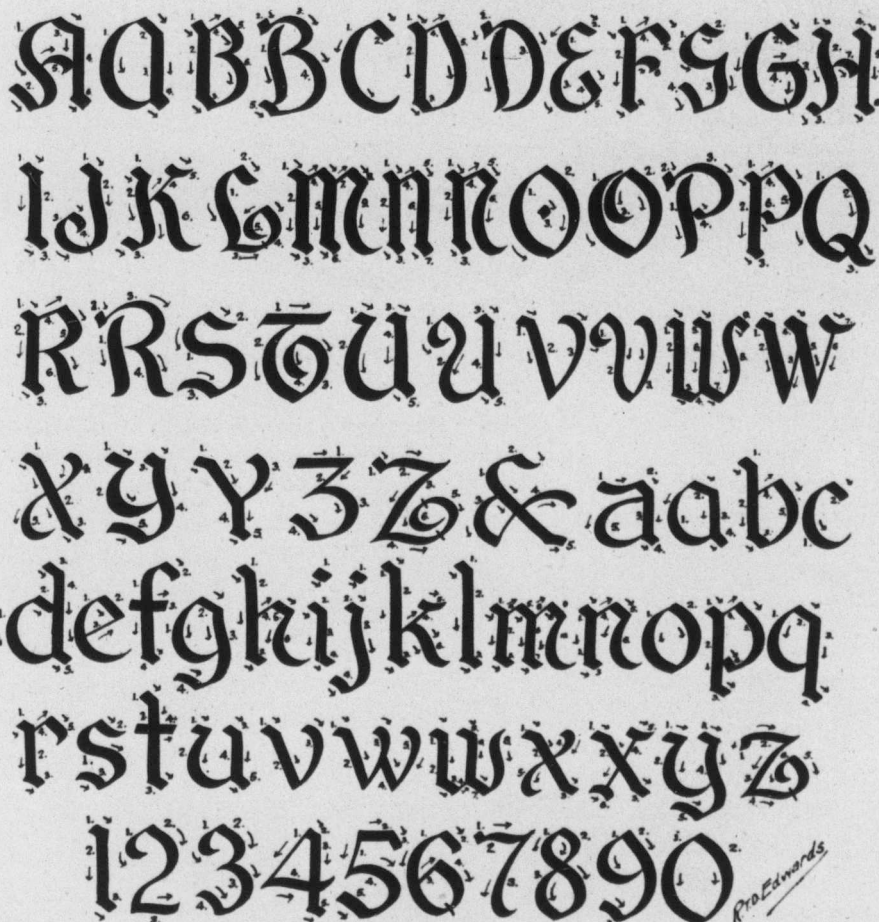 AABBCDDEFGGH
IJKLMNNOOPPQ
RRSTUUVVWW
XYYZZ&aabc
defghijklmnopq
rstuvwwxxyz
1234567890
P.T.O. Edwards